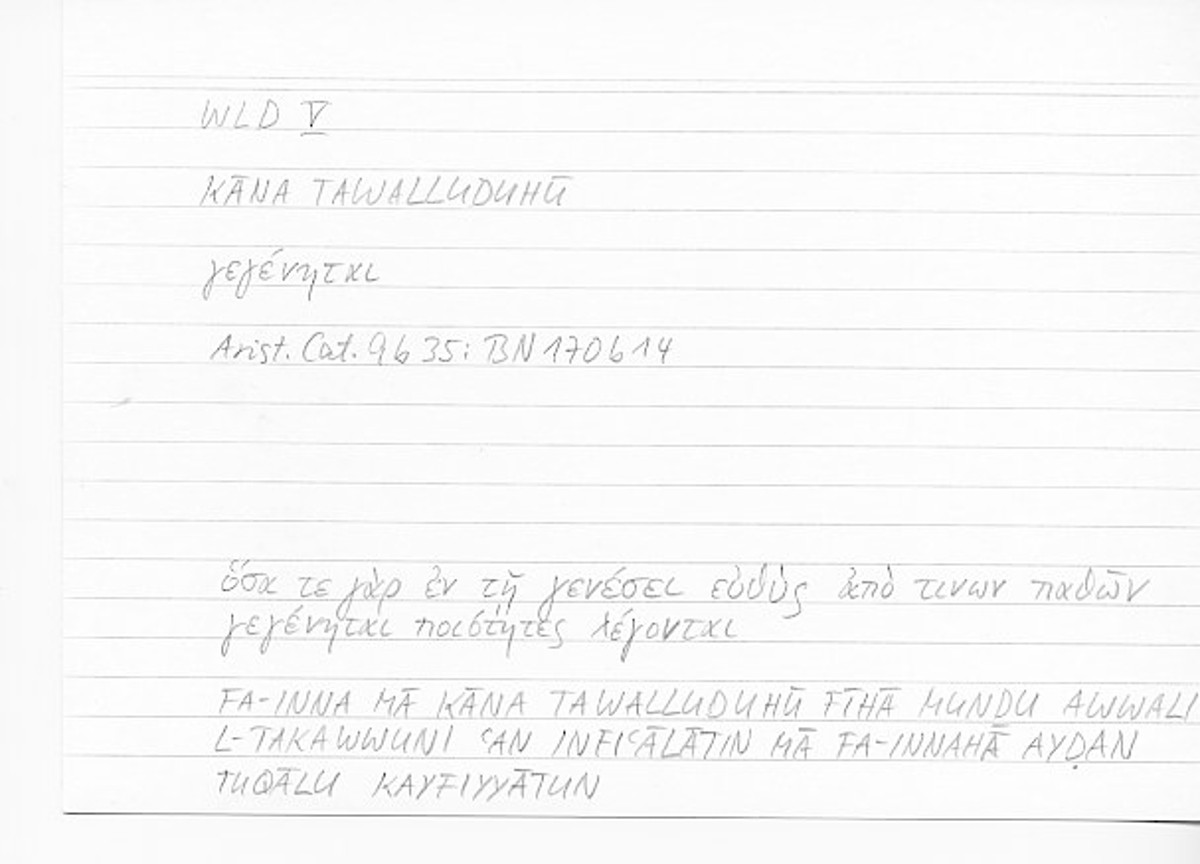 WLD V
KĀNA TAWALLUDUHŪ
γεγένηται
Arist. Cat. 9b 35: BN 170b14
ὅσα τε γὰρ ἐν τῇ γενέσει εὐθὺς ἀπό τινων παθῶν
γεγένηται ποιότητες λέγονται
FA-INNA MĀ KĀNA TAWALLUDUHŪ FĪHĀ MUNḎU AWWALI
L-TAKAWWUNI ʿAN INFIʿĀLĀTIN MĀ FA-INNAHĀ AYḌAN
TUQĀLU KAYFIYYĀTUN